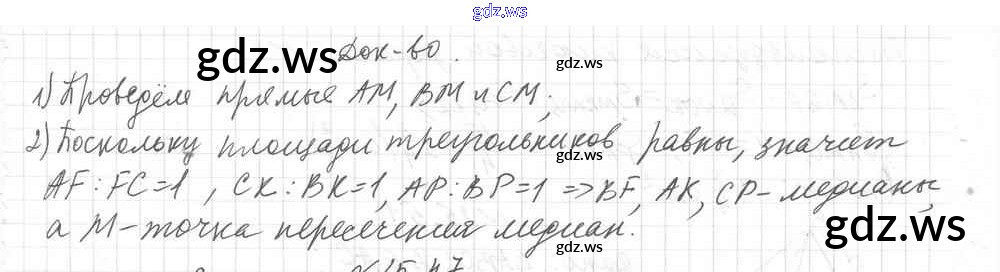 gdz.ws
gdz.ws Док-во. gdz.ws
1) Проведём прямые AM, BM и CM;
2) Поскольку площади треугольников равны, значит
gdz.ws
AF:FC=1, CK:BK=1, AP:BP=1 => BF, AK, CP - медианы,
а M - точка пересечения медиан. gdz.ws
gdz.ws